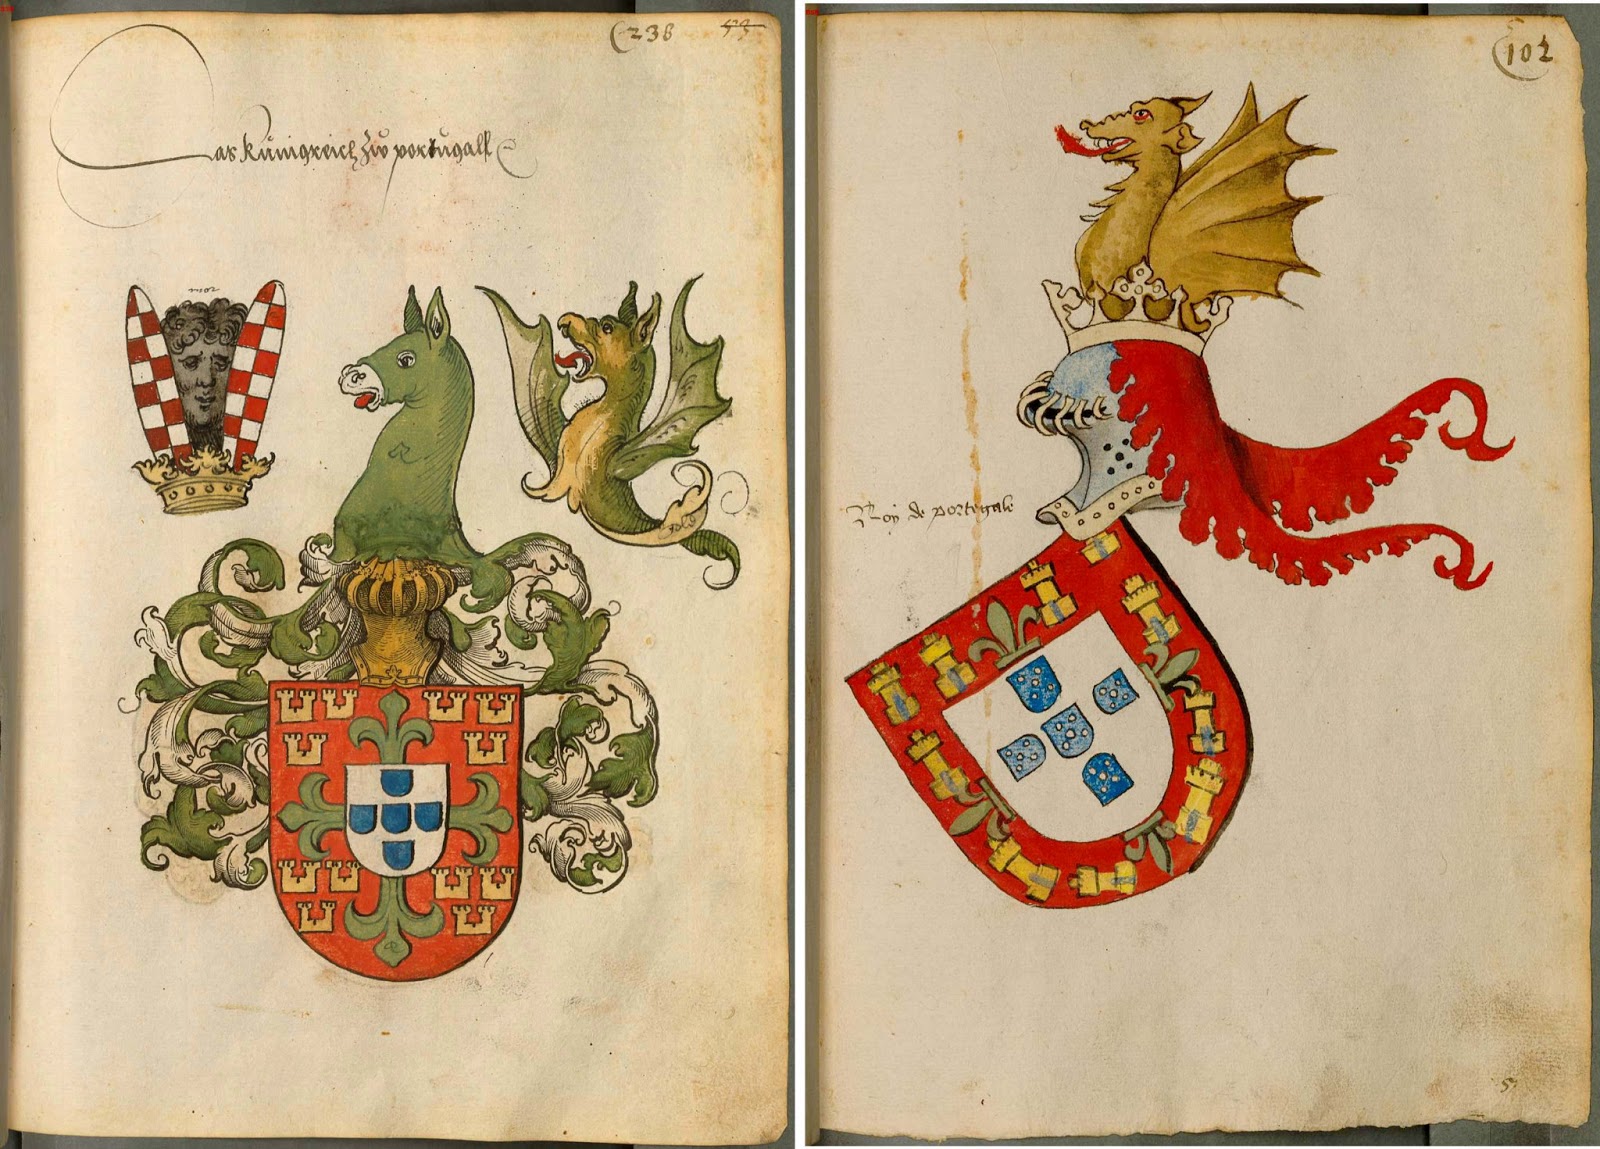 238 53
Das Künigreich zuo portugall
mor
102
Roy de portegale
5